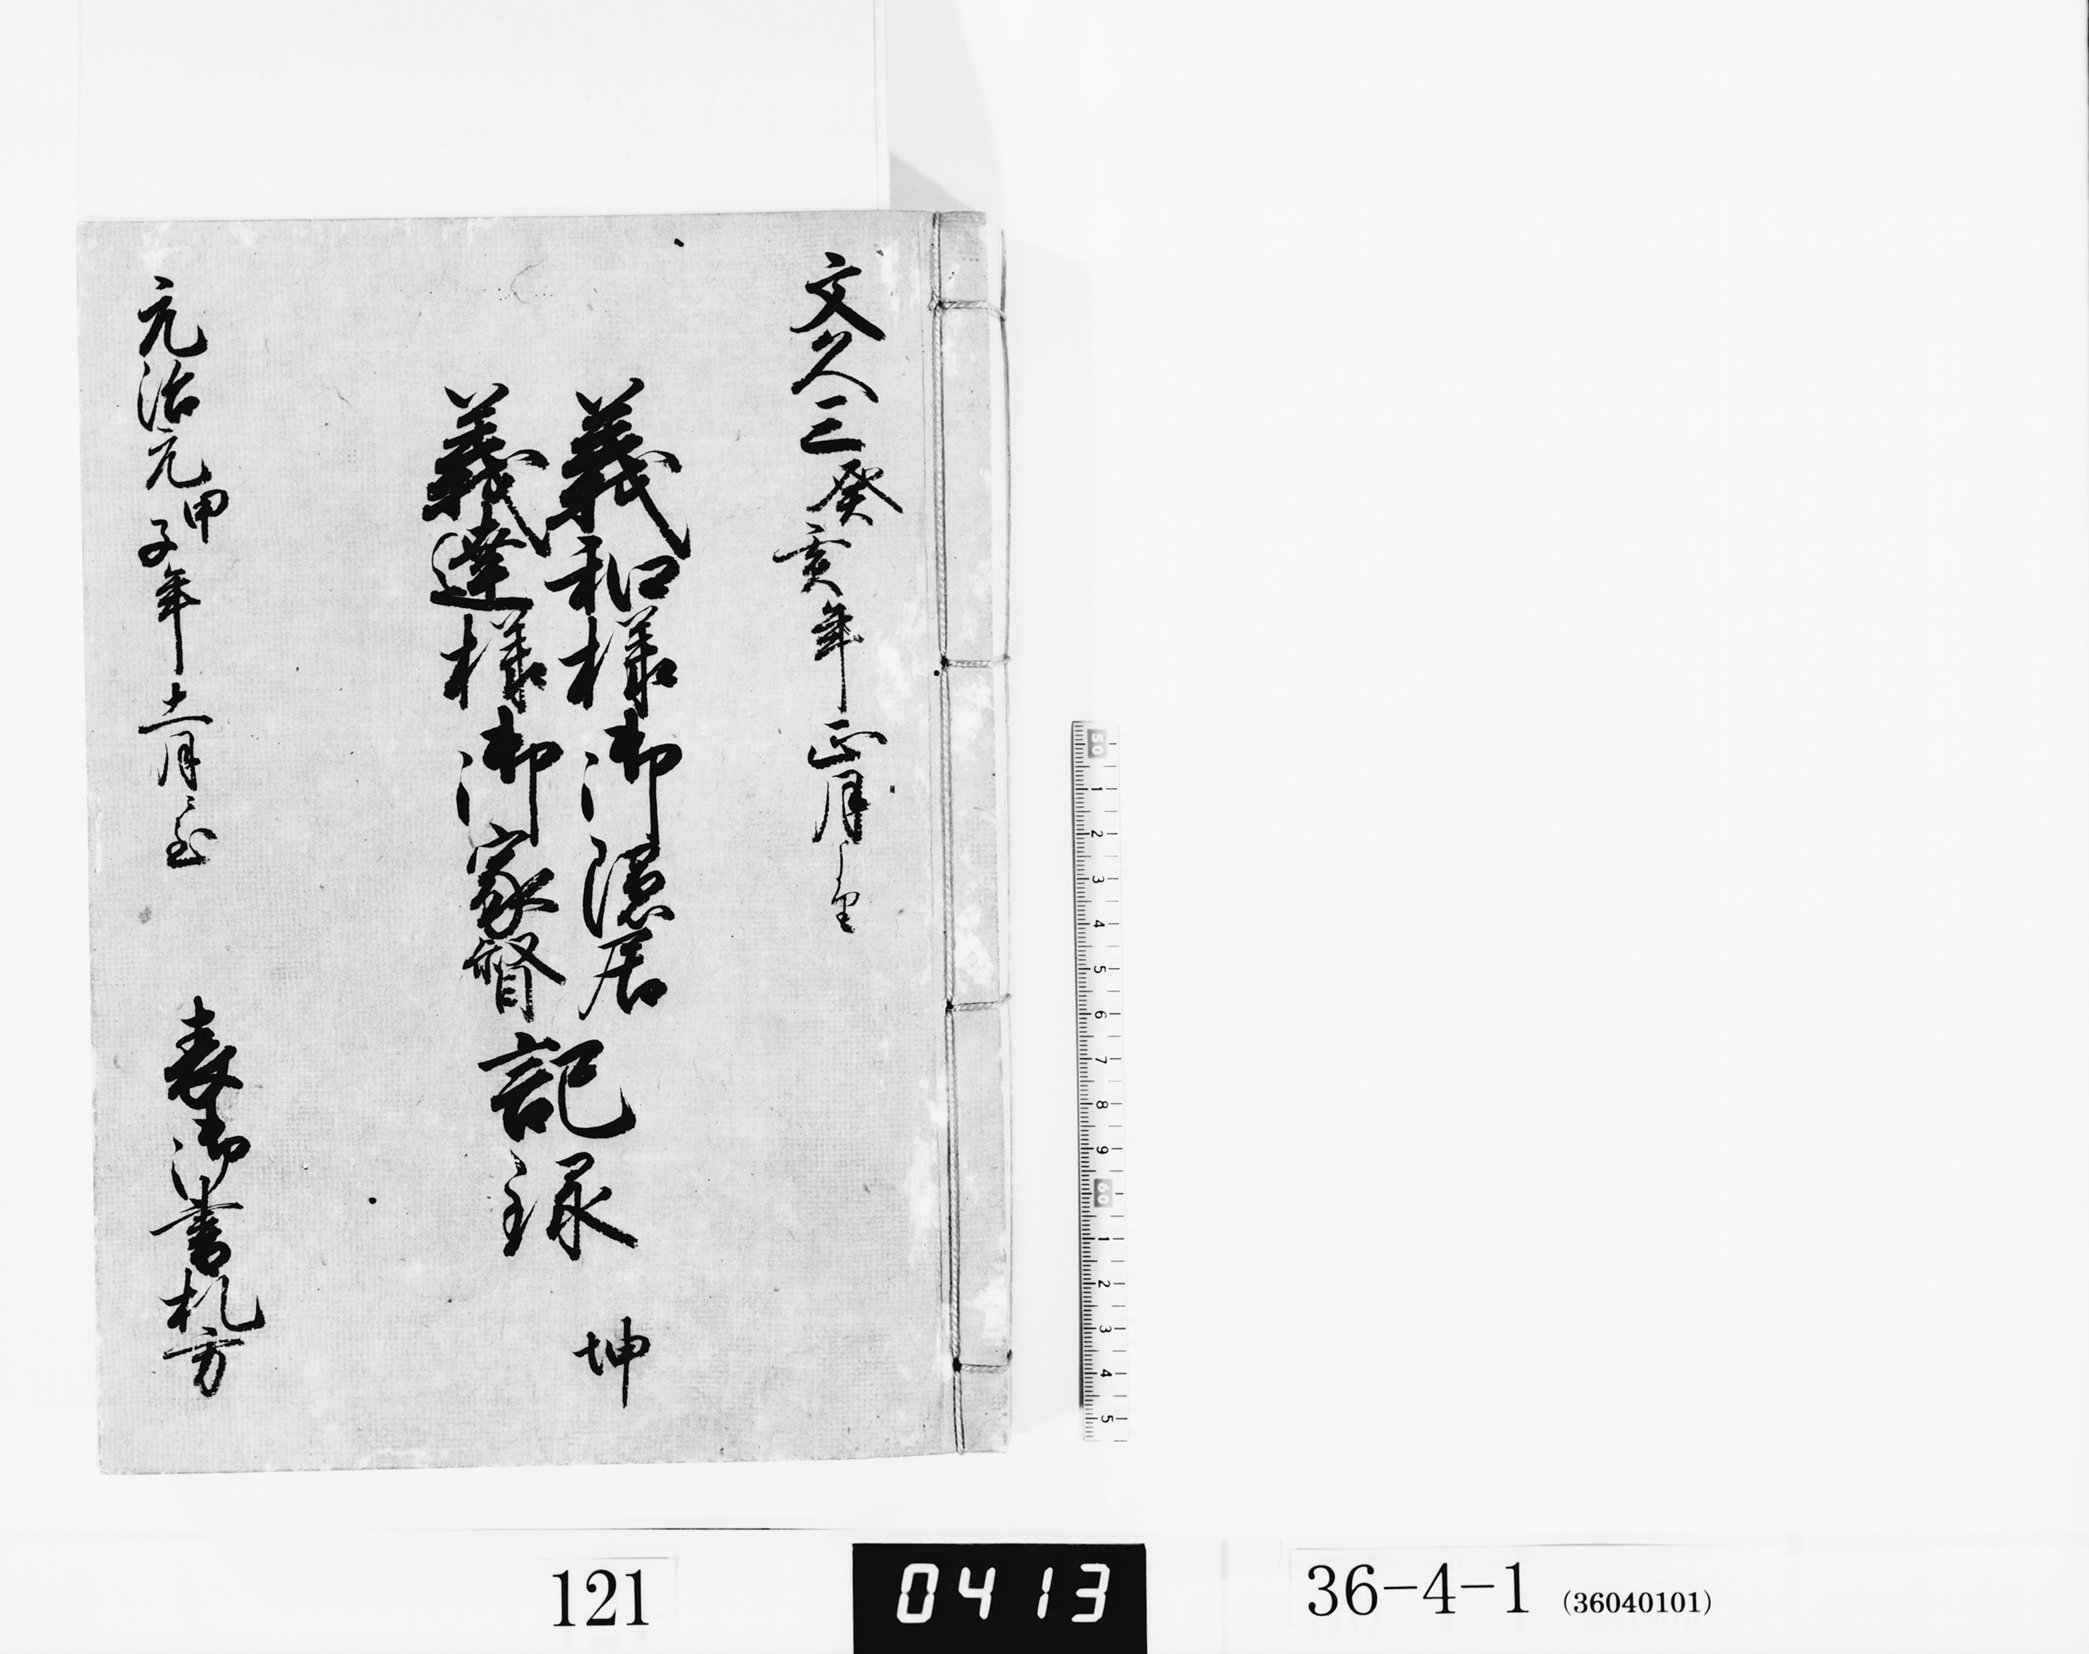 文久三癸亥年正月ゟ
義和様御隠居
義達様御家督
記録
坤
元治元甲子年十一月ニ至
表御書札方
50
1
2
3
4
5
6
7
8
9
60
1
2
3
4
5
121
0413
36-4-1 (36040101)